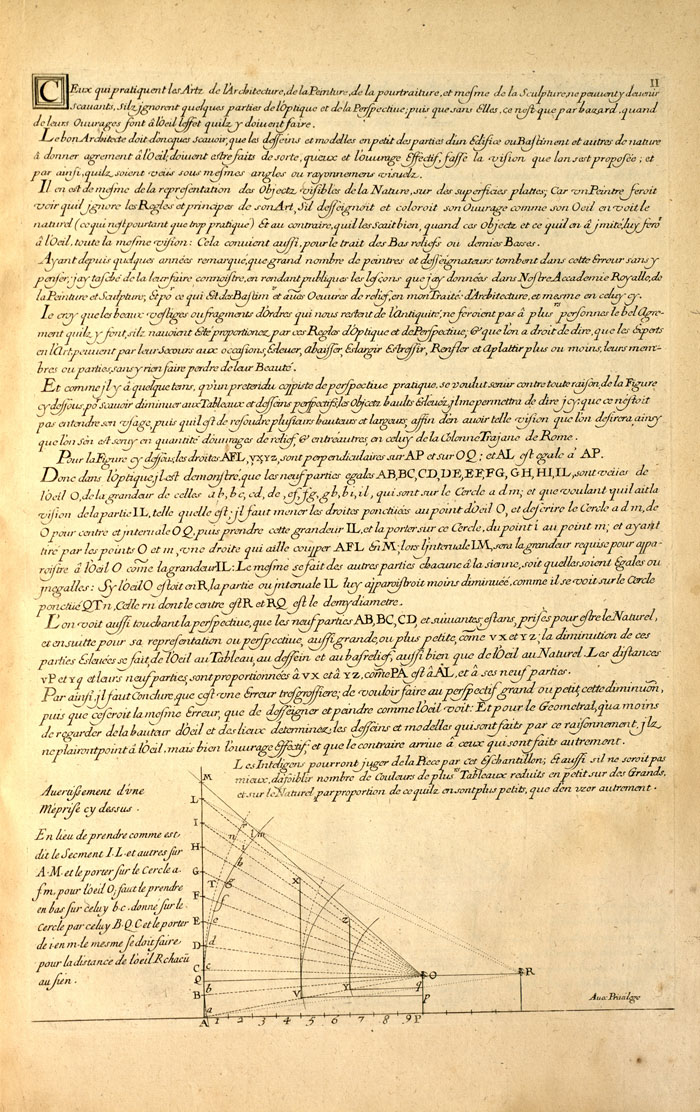 II
CEux qui pratiquent les Artz de l'Architecture, de la Peinture, de la pourtraiture, et mesme de la Sculpture, ne peuvent y devenir
scauants, silz jgnorent quelques parties de l'Optique et de la Perspective; puis que sans Elles, ce n'est que par hazard, quand
de leurs Ouurages font â l'Oeil l'effet quilz y doiuent faire.
Le bon Architecte doit doncques scauoir, que les desseins et modelles en petit des parties d'un Edifice ou Bastiment et autres de nature
â donner agrement â l'Oeil, doiuent estre faits de sorte, qu'eux et l'ouurage Effectif, fasse la vision que lon s'est proposée; et
par ainsi, quilz soient veüs sous mesmes angles ou rayonnemens visuelz.
Il en est de mesme de la representation des Objectz visibles de la Nature, sur des superficies plattes; Car vn Peintre feroit
voir quil jgnore les Regles et principes de son Art, Sil desseignoit et coloroit son Ouurage comme son Oeil en voit le
naturel (ce qui nest pourtant que trop pratiqué) Et au contraire, quil les scait bien, quand ces Objectz et ce quil en â jmité, luy fero.t
â l'Oeil, toute la mesme vision: Cela conuient aussi, pour le trait des Bas reliefs ou demies Basses.
Ayant depuis quelques années remarqué, que grand nombre de peintres et desseignateurs tombent dans cette Erreur sans y
penser, jay tasché de la leur faire connoistre, en rendant publiques les lecons que jay données dans Nostre Accademie Royalle, de
la Peinture et Sculpture; Et po.r ce qui Est des Bastim.ts et autres Oeuures de relief, en mon Traité d'Architecture, et mesme en celuy cy.
Ie croy que les beaux vestiges ou fragments d'Ordres qui nous restent de l'Antiquité, ne feroient pas â plusieurs personnes le bel Agre-
ment quilz y font, silz nauoient Esté proportionez, par ces Regles d'Optique et de Perspectiue; & que lon a droit de dire, que les Experts
en l'Art, peuuent par leur Secours aux occasions, Esleuer, abaisser, Eslargir Estressir, Renfler et Aplattir plus ou moins, leurs mem-
bres ou parties, sans y rien faire perdre de leur Beauté.
Et comme jl y â quelque tems, qu'un pretendu coppiste de perspectiue pratique, se voulut seruir contre toute raison, de la Figure
cy dessous, po.r scauoir diminuer aux Tableaux et desseins perspectifs, les Objectz haults Esleuéz, jl me permettra de dire jcy: que ce n'estoit
pas entendre son vsage, puis quil est de resoudre plusieurs hauteurs et largeurs, affin den auoir telle vision que lon desirera, ainsy
que lon s'en est seruy en quantité d'ouurages de relief, & entreautres en celuy de la Colonne Trajane de Rome.
Pour la Figure cy dessous, les droites AFL, vx, yz, sont perpendiculaires sur AP et sur OQ; et AL est egale â AP.
Donc dans l'Optique, jl est demonstré, que les neuf parties egales AB, BC, CD, DE, EF, FG, GH, HI, IL, sont veües de
l'oeil O, de la grandeur de celles ab, bc, cd, de, ef, fg, gh, hi, il, qui sont sur le Cercle adm; et que voulant quil ait la
vision de la partie IL, telle quelle est: jl faut mener les droites ponctüées au point d'Oeil O, et descrire le Cercle adm, de
O pour centre et jnteruale OQ, puis prendre cette grandeur IL, et la porter sur ce Cercle, du point i au point m; et ayant
tiré par les points O et m, vne droite qui aille coupper AFL En M: lors l'interuale IM, sera la grandeur requise pour appa-
roistre â l'oeil O côme la grandeur IL: Le mesme se fait des autres parties chacune â la sienne, soit quelles soient Egales ou
jnegalles: Sy l'oeil O estoit en R, la partie ou jnteruale IL luy apparoistroit moins diminuée, comme il se voit sur le Cercle
ponctüé QTn, Celle rn dont le centre est R et RQ est le demydiametre.
L'on voit aussi touchant la perspectiue, que les neuf parties AB, BC, CD, et suiuantes, estans, prises pour estre le Naturel,
et ensuitte pour sa representation ou perspectiue, aussi grande, ou plus petite, côme vx et yz; la diminution de ces
parties Esleuées se fait, de l'Oeil au Tableau, au dessein et au bas relief, aussi bien que de l'Oeil au Naturel. Les distances
vP et yq et leurs neuf parties, sont proportionnées â vx et â yz, côme PA est â AL, et â ses neuf parties.
Par ainsi, jl faut Conclure, que c'est vne Erreur tresgrossiere; de vouloir faire au perspectif grand ou petit, cette diminuôn,
puis que ce seroit la mesme Erreur, que de desseigner et peindre comme l'oeil voit: Et pour le Geometral, qu'a moins
de regarder de la hauteur d'Oeil et des lieux determinez, les desseins et modelles qui sont faits par ce raisonnement, jlz
ne plairont point â l'Oeil, mais bien l'ouurage Effectif, et que le contraire arriue â ceux qui sont faits autrement.
Les Inteligens pourront juger de la Piece par cet Eschantillon; Et aussi sil ne seroit pas
mieux, d'afoiblir nombre de Couleurs de plus.rs Tableaux reduits en petit sur des Grands,
et sur le Naturel, par proportion de ce quilz en sont plus petits, que den vzer autrement.
Auertissement d'vne
Meprise cy dessus.
En lieu de prendre comme est
dit le Secment I-L et autres sur
A-M et le porter sur le Cercle a-
f m, pour l'oeil O, faut le prendre
en bas sur celuy b-c donné sur le
Cercle par celuy B-Q-C et le porter
de i en m le mesme se doit faire
pour la distance de l'oeil R chacũ
au sien.
M
L
I
H
G
F
E
D
C
Q
B
A
n
i
l m
h
T
g
f
e
d
c
b
a
X
Z
V
Y
O
q
P
R
1 2 3 4 5 6 7 8 9
Auec Priuilege